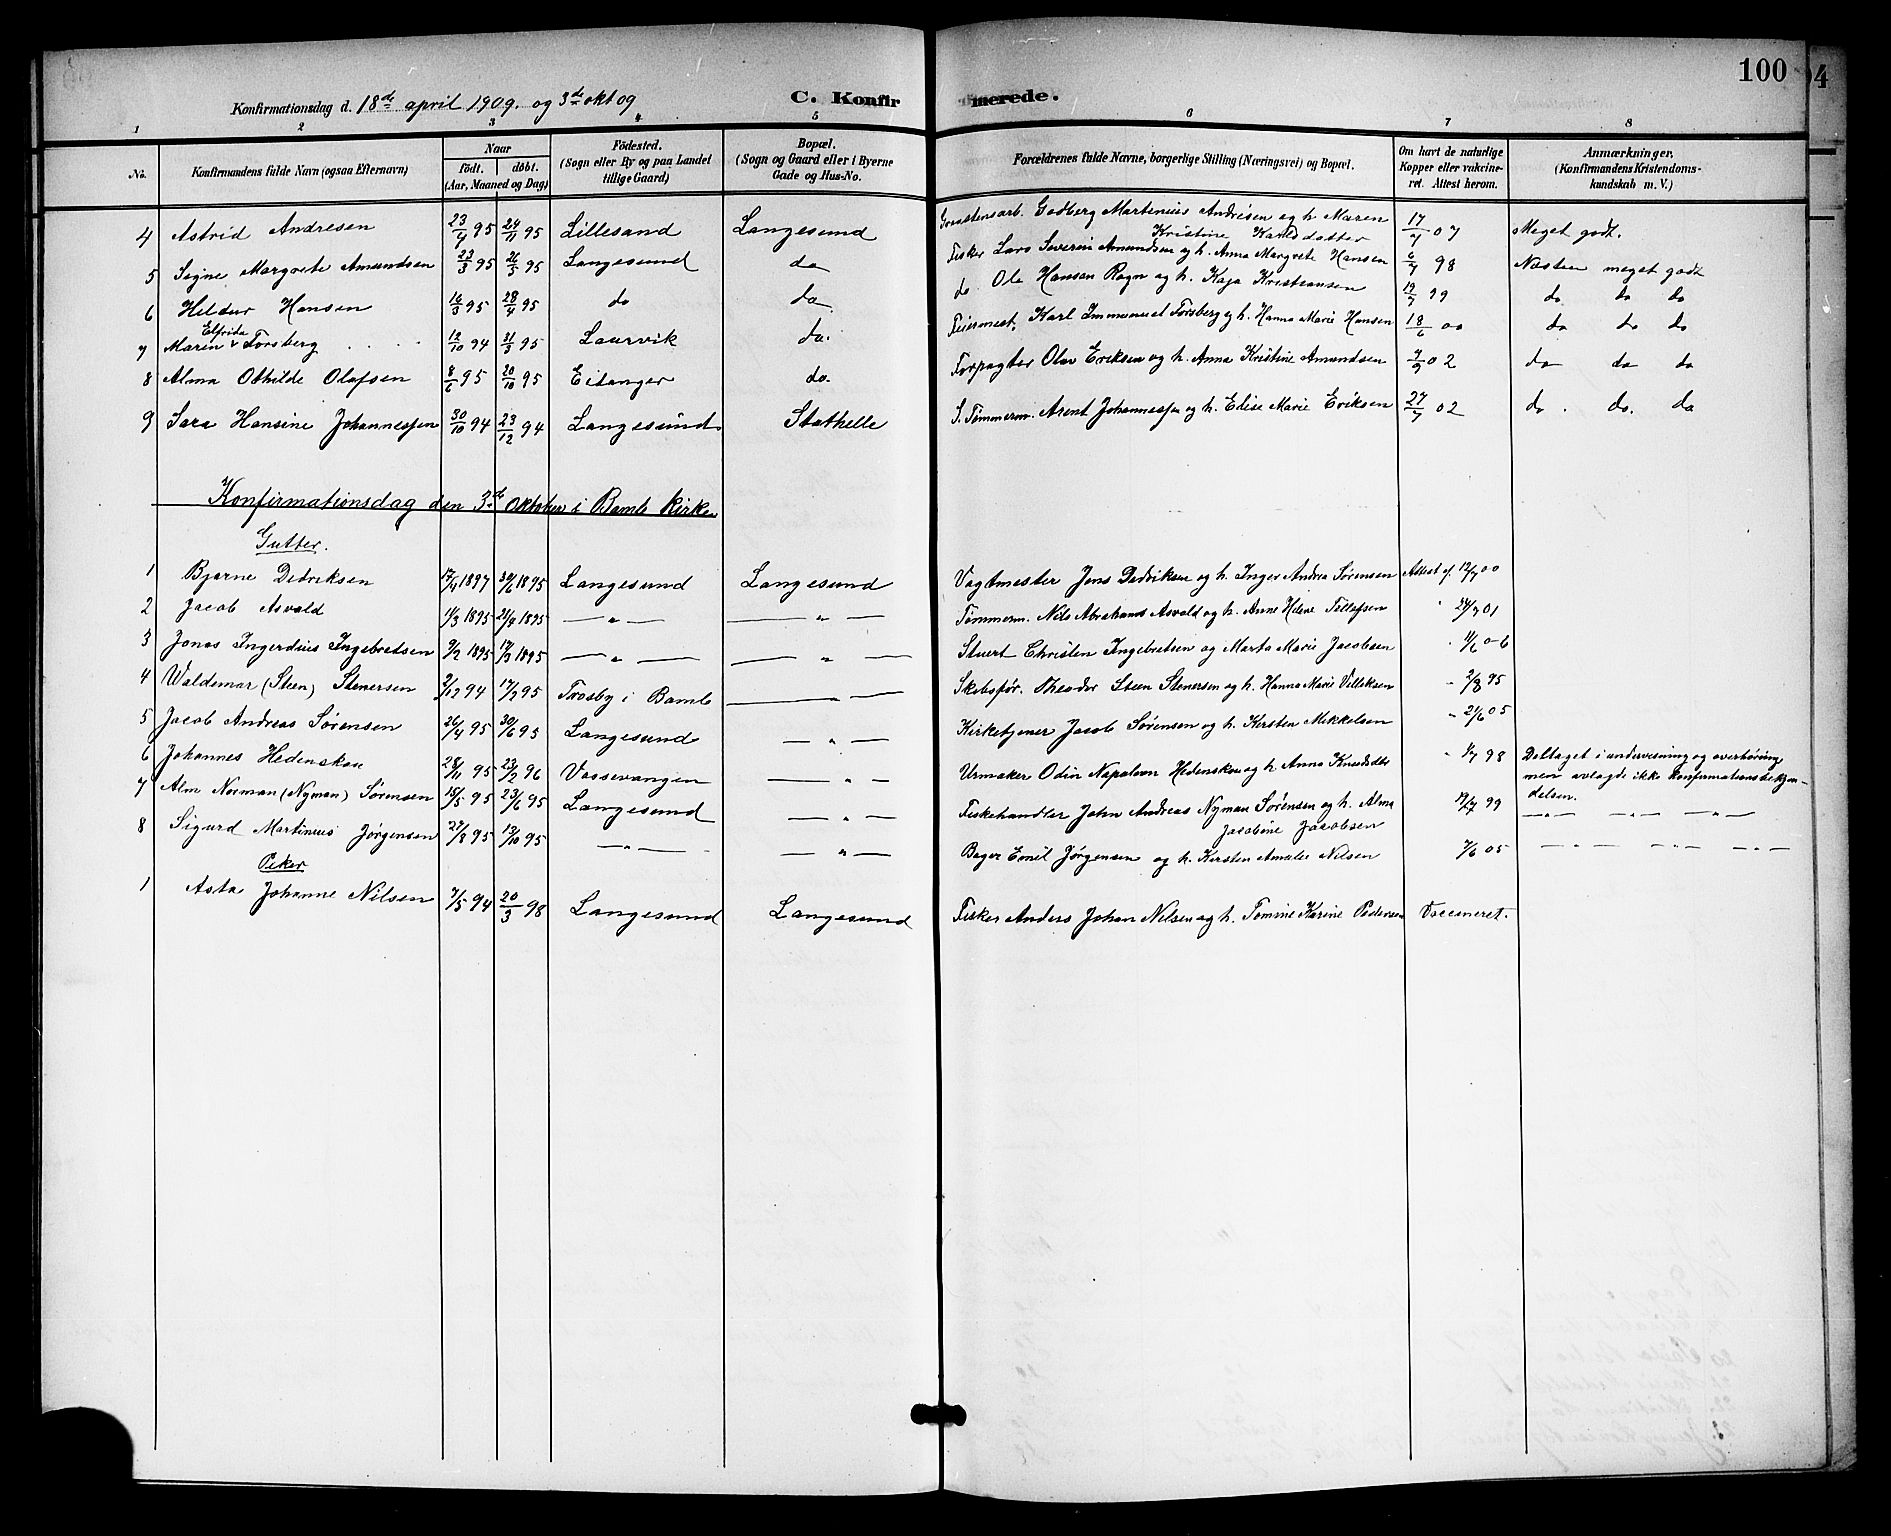 100
Konfirmationsdag d. 18de april 1909. og 3de okt 09 C. Konfirmerede.
1 2 3 4 5 6 7 8
No. Konfirmandens fulde Navn (ogsaa Efternavn) Naar født. døbt. (Aar, Maaned og Dag) Födested. (Sogn eller By og paa Landet tillige Gaard) Bopæl. (Sogn og Gaard eller i Byerne Gade og Hus-No. Forældrenes fulde Navne, borgerlige Stilling (Næringsvei) og Bopæl. Om havt de naturlige Kopper eller vakcineret. Attest herom. Anmærkninger. (Konfirmandens Kristendomskundskab m. V.)
4 Astrid Andresen 23/4 95 24/11 95 Lillesand Langesund Godberg Martinius Andresen og h. Maren
Kristine Karlsdatter 17/7 07 Meget godt.
5 Signe Margrete Amundsen 23/3 95 26/5 95 Langesund do Fisker Lars Severin Amundsen og h. Anna Margrete Hansen 6/7 98 Næsten meget godt
6 Hildur Hansen 16/3 95 28/4 95 do do do. Ole Hansen Rogn og h. Kaja Kristiansen 19/7 99 do. do do
7 Maren Elfrida Forsberg 12/10 94 31/3 95 Laurvik do. Feiermest. Karl Immanuel Forsberg og h. Hanna Marie Hansen 18/6 00 do do do
8 Alma Othilde Olafsen 8/6 95 20/10 95 Eidanger do. Forpagter Olav Eriksen og h. Anna Kristine Amundsen 9/9 02 do do do
9 Sara Hansine Johannessen 30/10 94 23/12 94 Langesund Stathelle S. Tømmerm. Arent Johannessen og h. Edise Marie Eriksen 27/7 02 do. do. do
Konfirmationsdag den 3de oktober i Bamle Kirke
Gutter.
1 Bjarne Dedriksen 17/4 1894 30/6 1895 Langesund Langesund Vagtmester Jens Dedriksen og h. Inger Andrea Sørensen Attest af 12/7 00
2 Jacob Asvald 11/3 1895 21/9 1895 — " — — " — Tømmerm. Nils Abrahams Asvald og h. Anne Helene Tellefsen " 24/7 01
3 Jonas Ingerdius Ingebretsen 9/2 1895 17/3 1895 — " — — " — Stuert Christen Ingebretsen og Marta Marie Jacobsen " 11/6 06
4 Waldemar (Steen) Stenersen 2/12 94 17/2 95 Trosby i Bamle — " — Skibsfør. Theodor Steen Stenersen og h. Hanna Marie Villeksen " 2/8 95
5 Jacob Andreas Sørensen 26/4 95 30/6 95 Langesund — " — Kirketjener Jacob Sørensen og h. Kirsten Mikkelsen " 21/6 05
6 Johannes Hedenskou 28/11 95 23/2 96 Vossevangen — " — Urmaker Odin Napoleon Hedenskou og h. Anna Knudsdtr " 1/7 98 Deltaget i undervisning og overhøring
men avlagde ikke konfirmationsbekjen-
delsen.
7 Alm Norman (Nyman) Sørensen 15/5 95 23/6 95 Langesund — " — Fiskehandler John Andreas Nyman Sørensen og h. Alma
Jacobine Jacobsen 19/7 99 — " — — " — — " —
8 Sigurd Martinius Jørgensen 27/8 95 13/10 95 — " — — " — Bager Emil Jørgensen og h. Kirsten Amalie Nilsen 7/6 05 — " — — " — — " —
Piker
1 Asta Johanne Nilsen 7/5 94 20/3 98 Langesund Langesund Fisker Anders Johan Nilsen og h. Tomine Karine Pedersen Vaccineret.